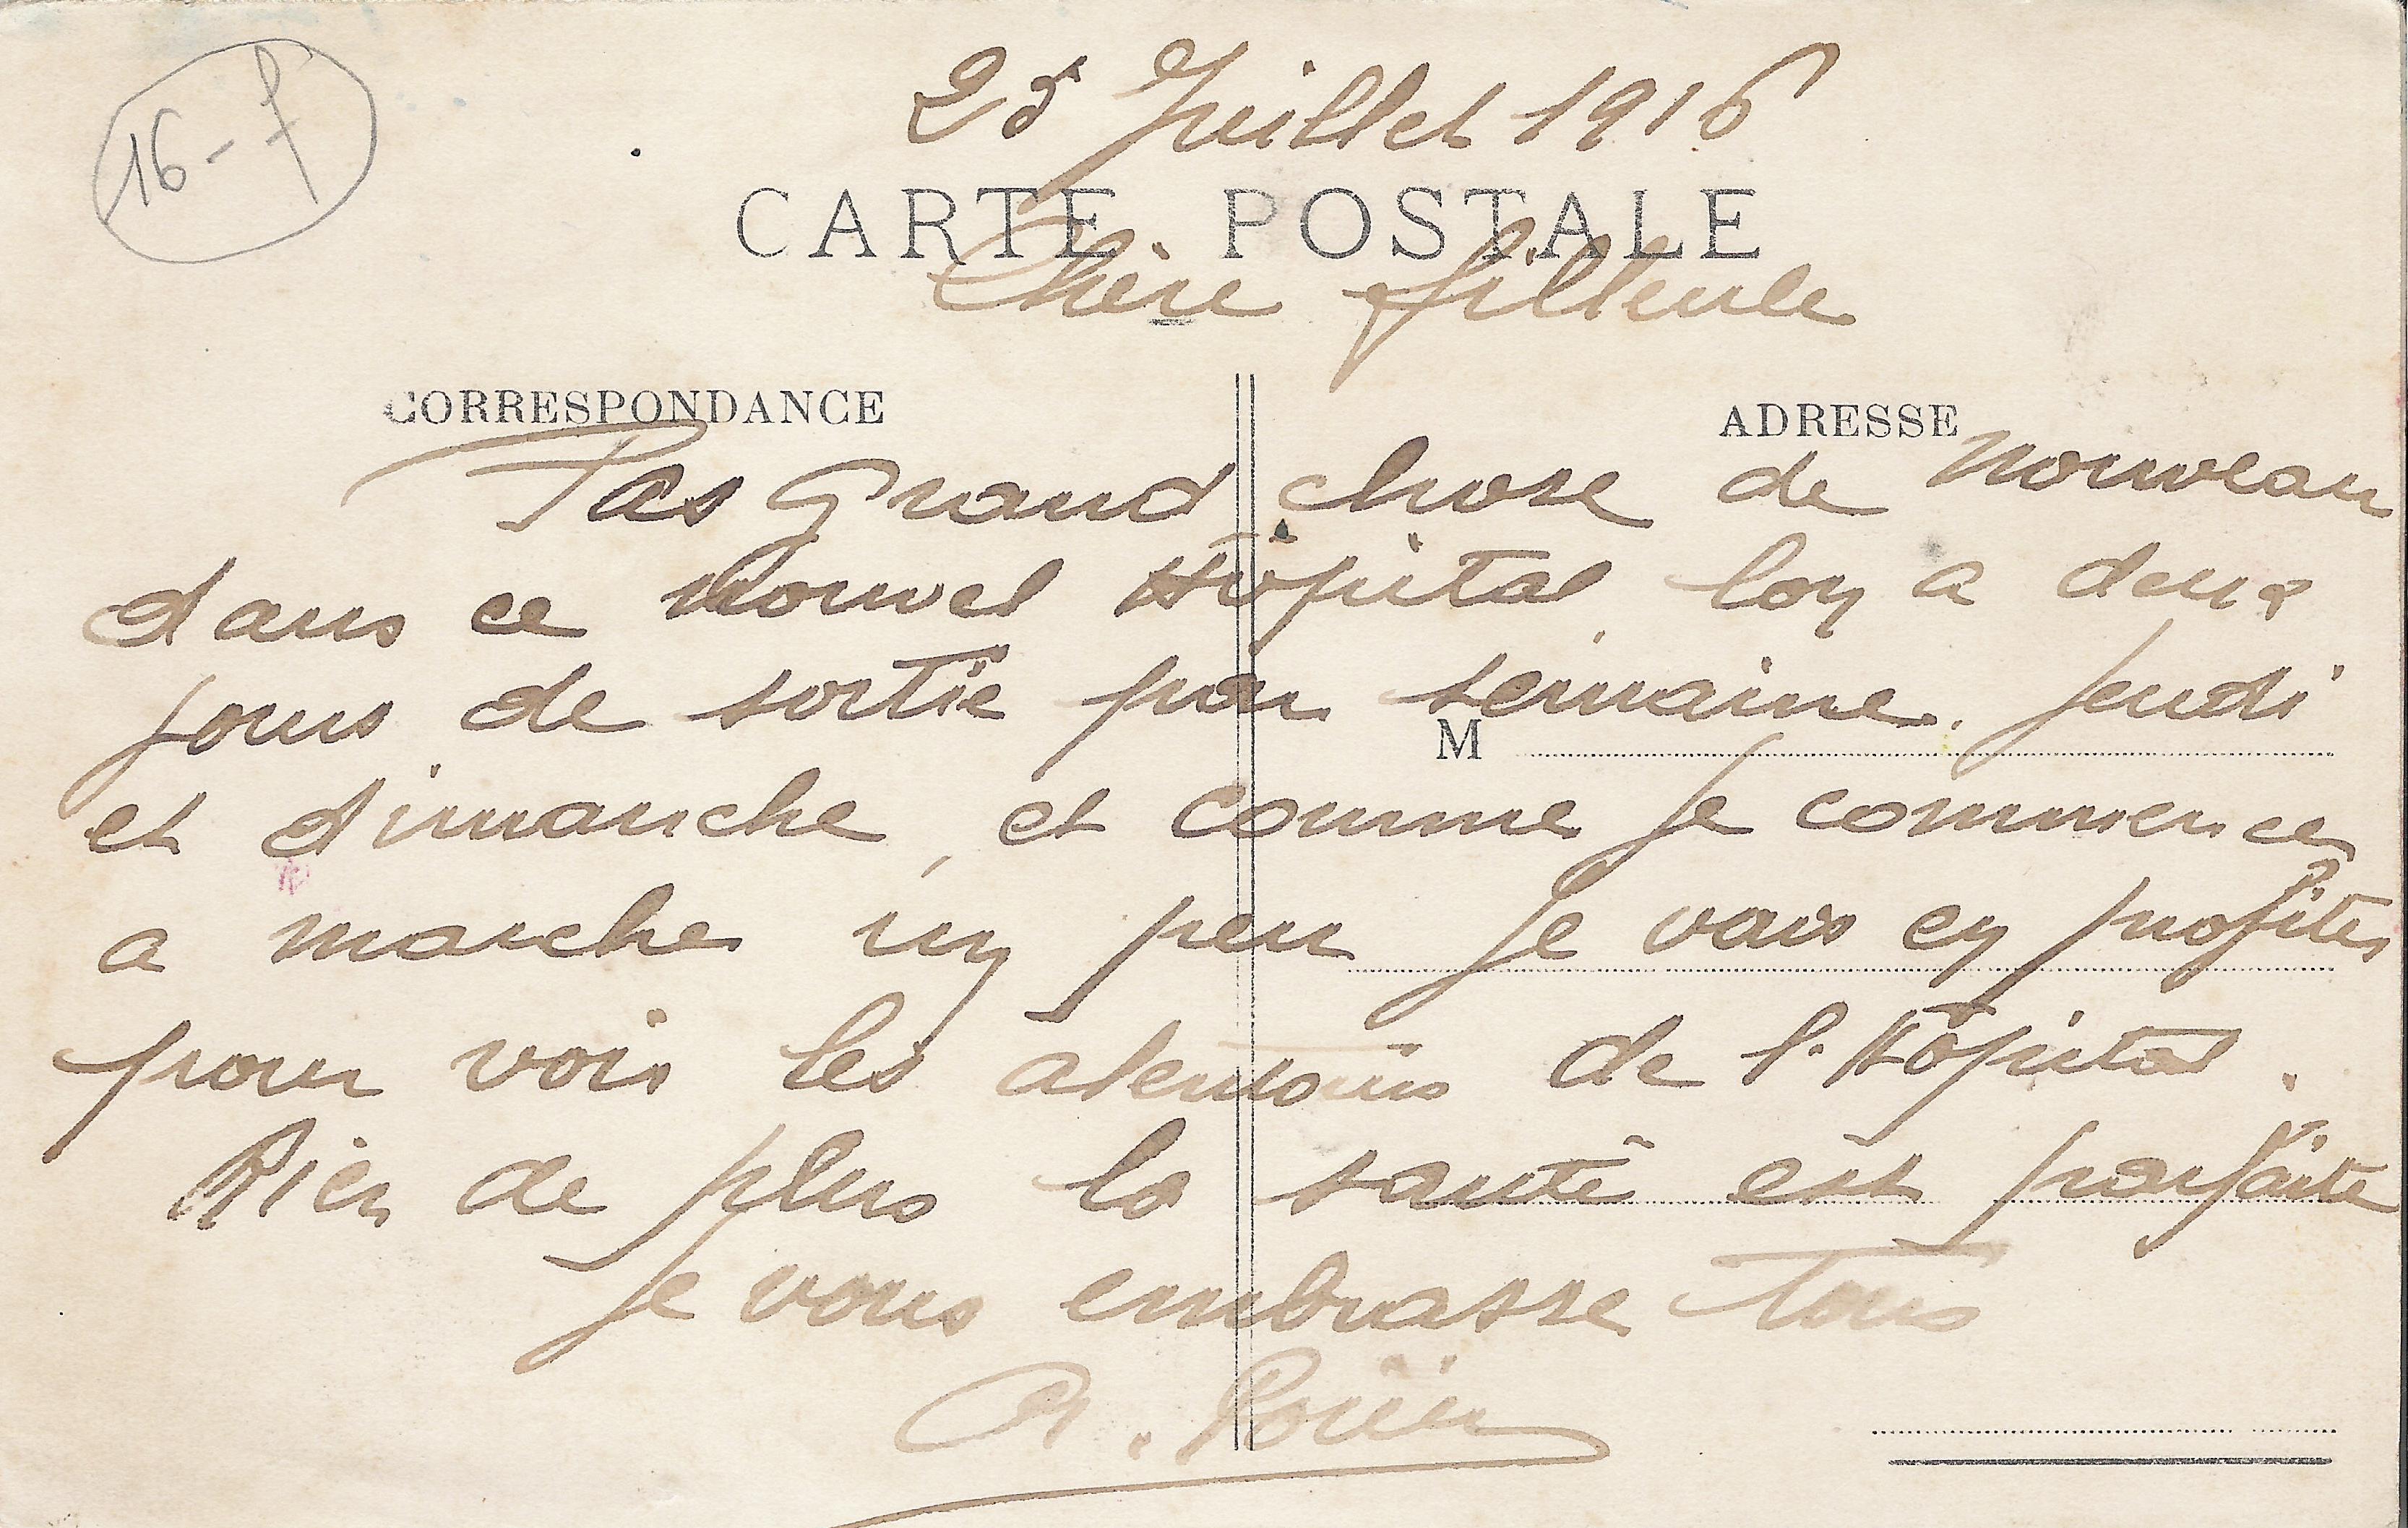 16-7
25 Juillet 1916
CARTE POSTALE
Chère filleule
CORRESPONDANCE
ADRESSE
Pas Grand chose de nouveau
dans ce nouvel Hôpital, lon a deux
jours de sortie par semaine. Jeudi
M
et dimanche, et comme je commence
a marcher un peu je vais en profiter
pour voir les alentours de l'Hôpital.
Rien de plus la santé est parfaite
Je vous embrasse Tous